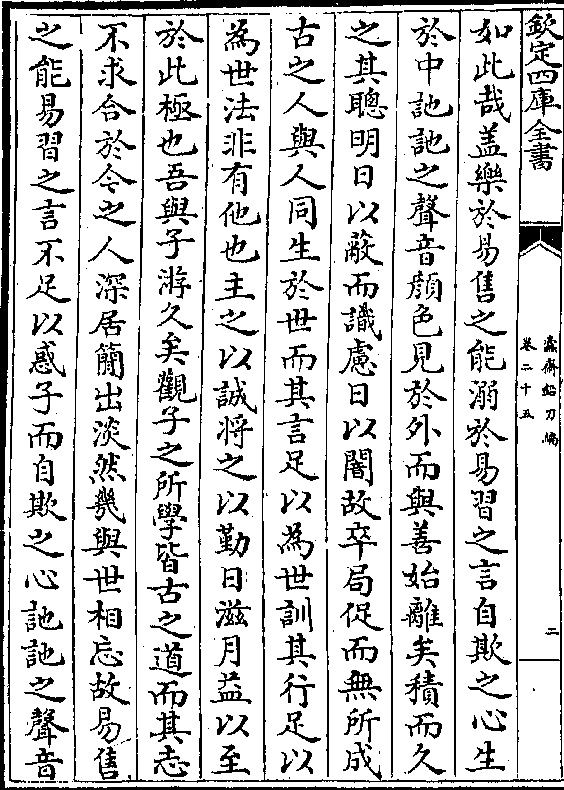 欽定四庫全書
蠹齋鉛刀編
卷二十五
二
如此哉盖樂於易售之能溺於易習之言自欺之心生
於中訑訑之聲音顔色見於外而與善始離矣積而久
之其聰明日以蔽而識慮日以闇故卒局促而無所成
古之人與人同生於世而其言足以為世訓其行足以
為世法非有他也主之以誠將之以勤日滋月益以至
於此極也吾與子游久矣觀子之所學皆古之道而其志
不求合於今之人深居簡出淡然幾與世相忘故易售
之能易習之言不足以惑子而自欺之心訑訑之聲音